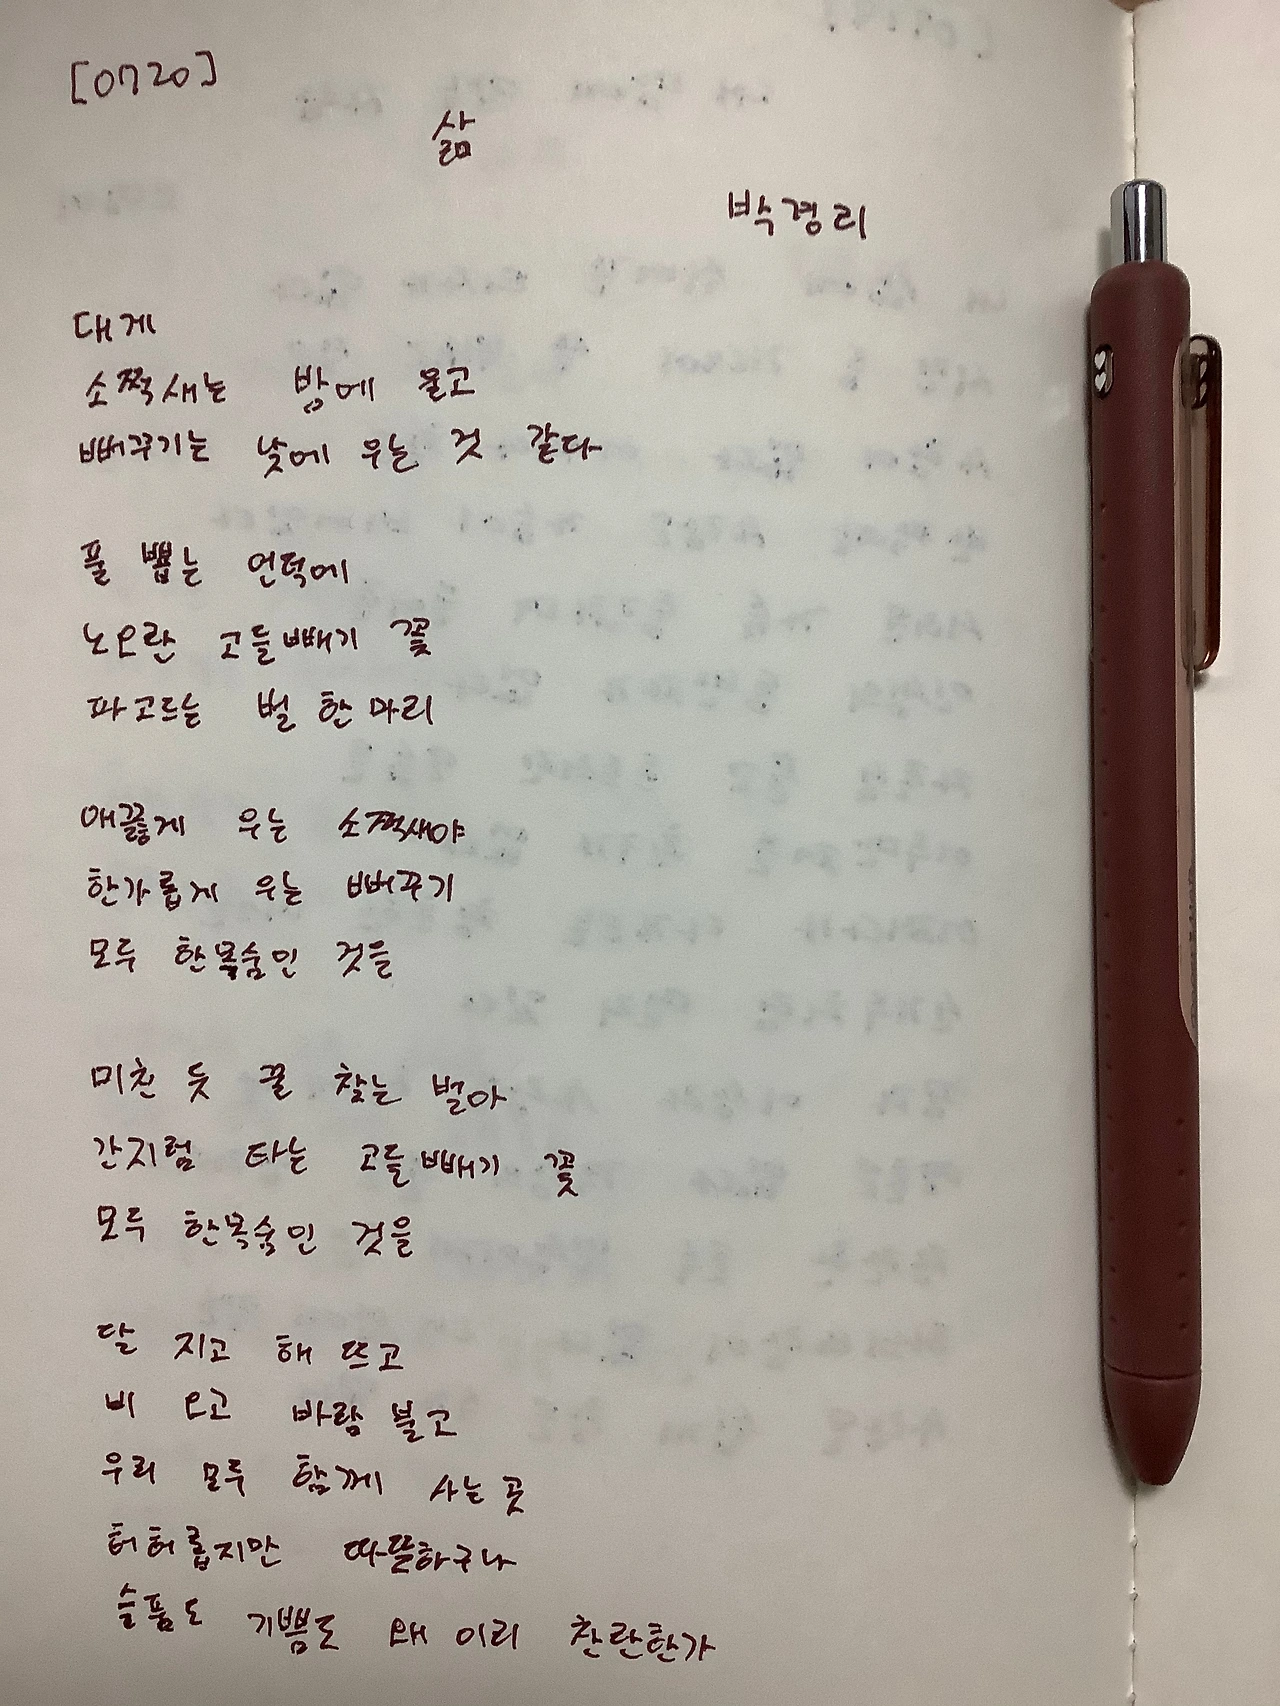 [0720]
삶
박경리
대게
소쩍새는 밤에 울고
뻐꾸기는 낮에 우는 것 같다
풀 뽑는 언덕에
노오란 고들빼기 꽃
파고드는 벌 한마리
애끓게 우는 소쩍새야
한가롭게 우는 뻐꾸기
모두 한목숨인 것을
미친 듯 꿀 찾는 벌아
간지럼 타는 고들빼기 꽃
모두 한목숨인 것을
달 지고 해 뜨고
비 오고 바람 불고
우리 모두 함께 사는 곳
허허롭지만 따뜻하구나
슬픔도 기쁨도 왜 이리 찬란한가